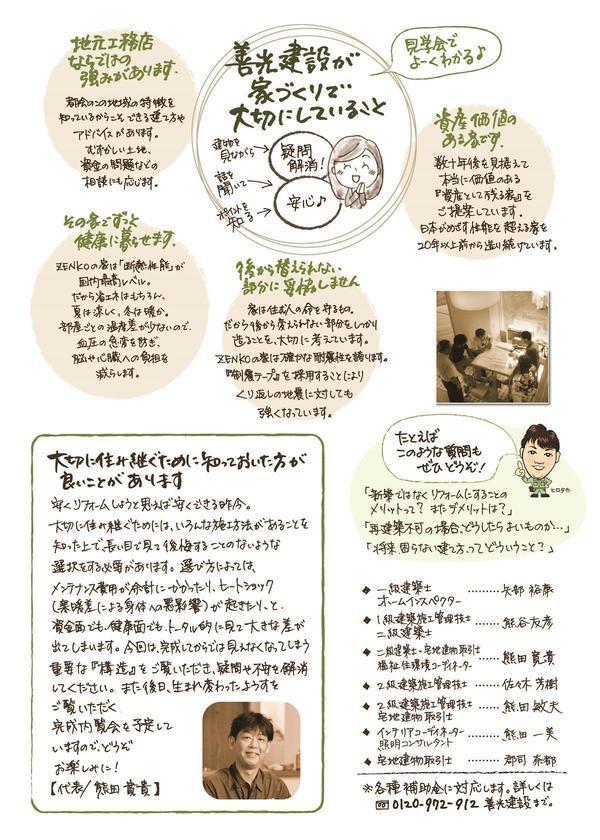 地元工務店
ならではの
強みがあります。
都会のこの地域の特徴を
知っているからこそできる建て方や
アドバイスがあります。
むずかしい土地、
資金の問題などの
相談にも応じます。
善光建設が
家づくりで
大切にしていること
見学会で
よーくわかる♪
建物を
見ながら
話を
聞いて
ポイントを
知る
疑問
解消!
安心♪
資産価値の
ある家です。
数十年後を見据えて
本当に価値のある
『資産として残る家』を
ご提案しています。
日本がめざす性能を超える家を
20年以上前から造り続けています。
その家でずっと
健康に暮らせます。
ZENKOの家は「断熱性能」が
国内最高レベル。
だから省エネはもちろん、
夏は涼しく、冬は暖か。
部屋ごとの温度差が少ないので、
血圧の急変を防ぎ、
脳や心臓への負担を
減らします。
後から替えられない
部分に妥協しません
家は住む人の命を守るもの。
だから後から変えられない部分をしっかり
造ることを、大切に考えています。
ZENKOの家は確かな耐震性を誇ります。
『制震テープ』を採用することにより
くり返しの地震に対しても
強くなっています。
たとえば
このような質問も
ぜひどうぞ!
ヒロタカ
「新築ではなくリフォームにすることの
メリットって?またデメリットは?」
「再建築不可の場合、どうしたらよいものか…」
「将来困らない建て方ってどういうこと?」
大切に住み継ぐために知っておいた方が
良いことがあります
安くリフォームしようと思えば安くできる昨今。
大切に住み継ぐためには、いろんな施工方法があることを
知った上で長い目で見て後悔することのないような
選択をする必要があります。選び方によっては、
メンテナンス費用が余計にかかったり、ヒートショック
(寒暖差による身体への悪影響)が起きたり、と、
資金面でも、健康面でも、トータル的に見て大きな差が
出てしまいます。今回は、完成してからでは見えなくなってしまう
重要な『構造』をご覧いただき、疑問や不安を解消
してください。また後日、生まれ変わったようすを
ご覧いただく
完成内覧会を予定して
いますので、どうぞ
お楽しみに!
【代表/熊田寛貴】
◆ 一級建築士
ホームインスペクター ………矢部 裕康
◆ 1級建築施工管理技士
二級建築士 ………熊谷友彦
◆ 二級建築士・宅地建物取引士
福祉住環境コーディネーター ………熊田 寛貴
◆ 2級建築施工管理技士 ………佐々木 芳樹
◆ 2級建築施工管理技士
宅地建物取引士 ………熊田 敏夫
◆ インテリアコーディネーター
照明コンサルタント ………熊田 一美
◆ 宅地建物取引士 ………郡司 奈都
※各種補助金に対応します。詳しくは
0120-972-912 善光建設まで。